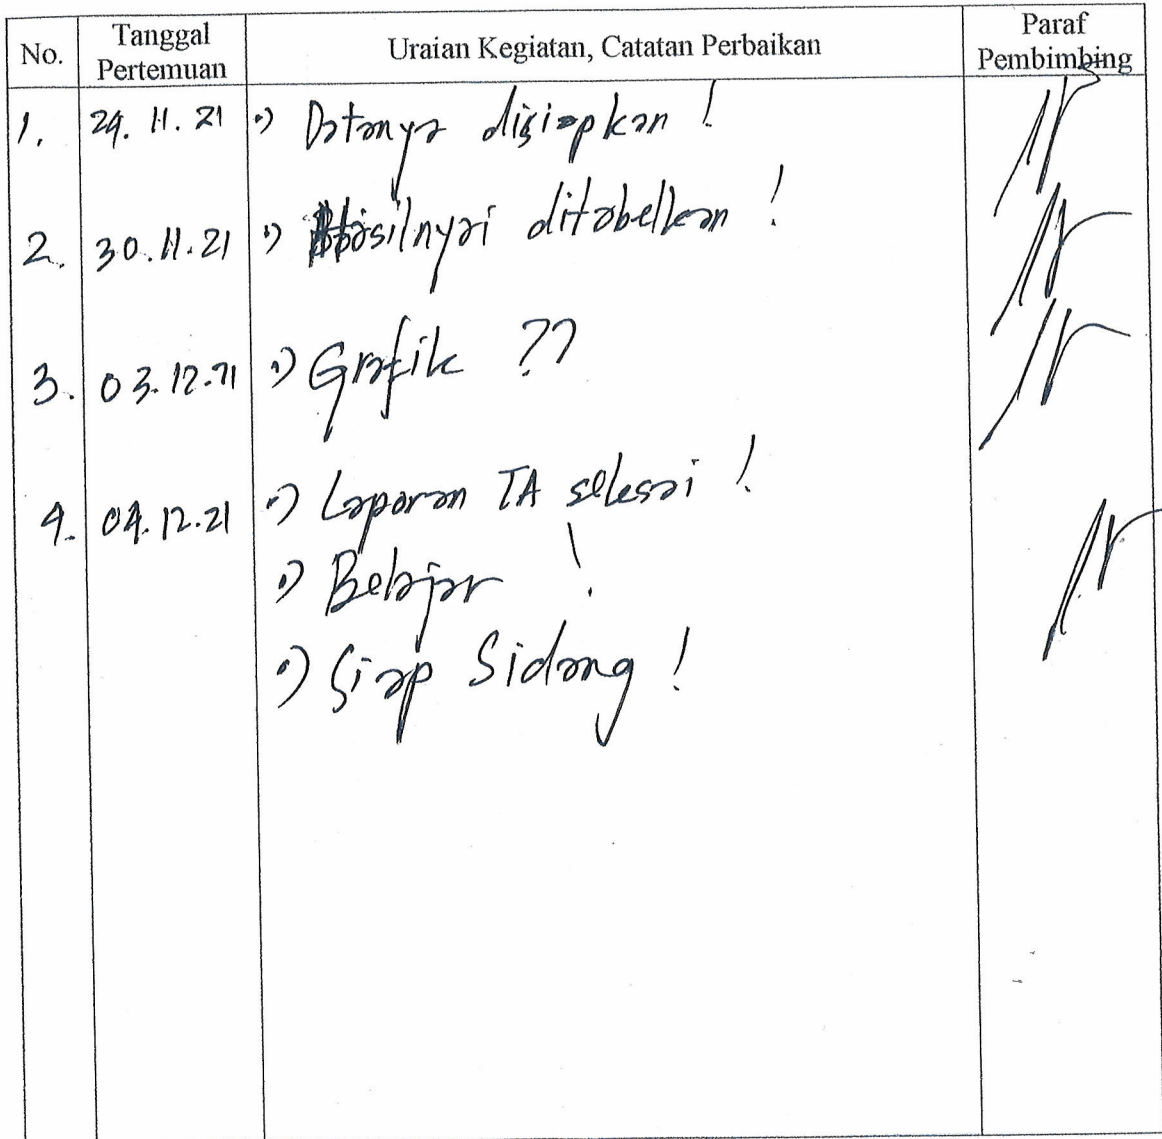 No. Tanggal Pertemuan Uraian Kegiatan, Catatan Perbaikan Paraf Pembimbing
1. 29.11.21 •) Datanya disiapkan !
2. 30.11.21 •) ditabelkan !
3. 03.12.21 •) Grafik ??
4. 04.12.21 •) Laporan TA selesai !
•) Belajar !
•) Siap Sidang !